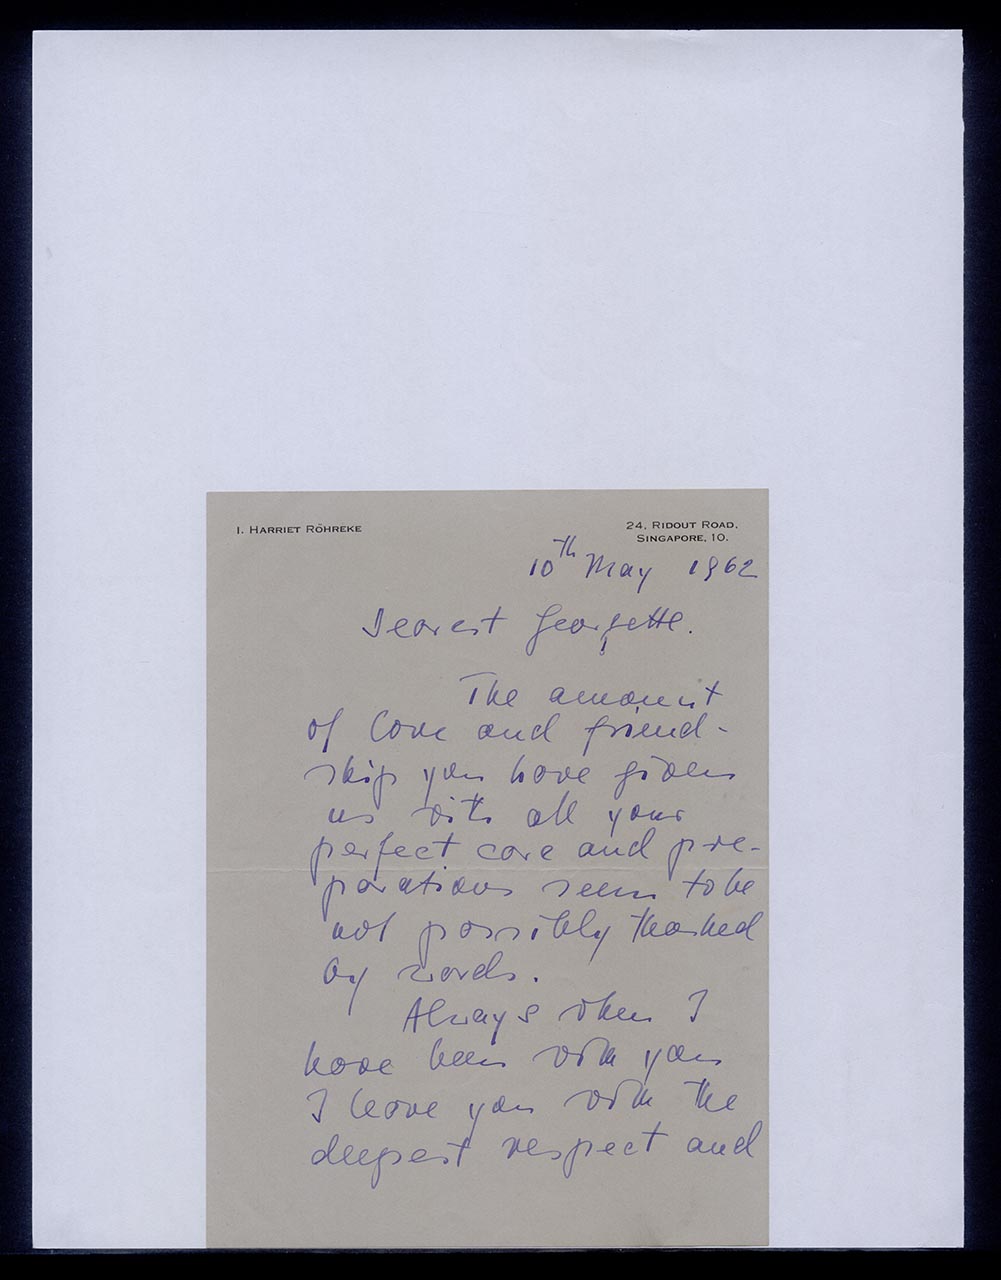 I. HARRIET RÖHREKE
24, RIDOUT ROAD.
SINGAPORE, 10.
10th May 1962
Dearest Georgette.
The amount
of love and friend-
ship you have given
us with all your
perfect care and pre-
parations seem to be
not possibly thanked
by words.
Always when I
have been with you
I leave you with the
deepest respect and